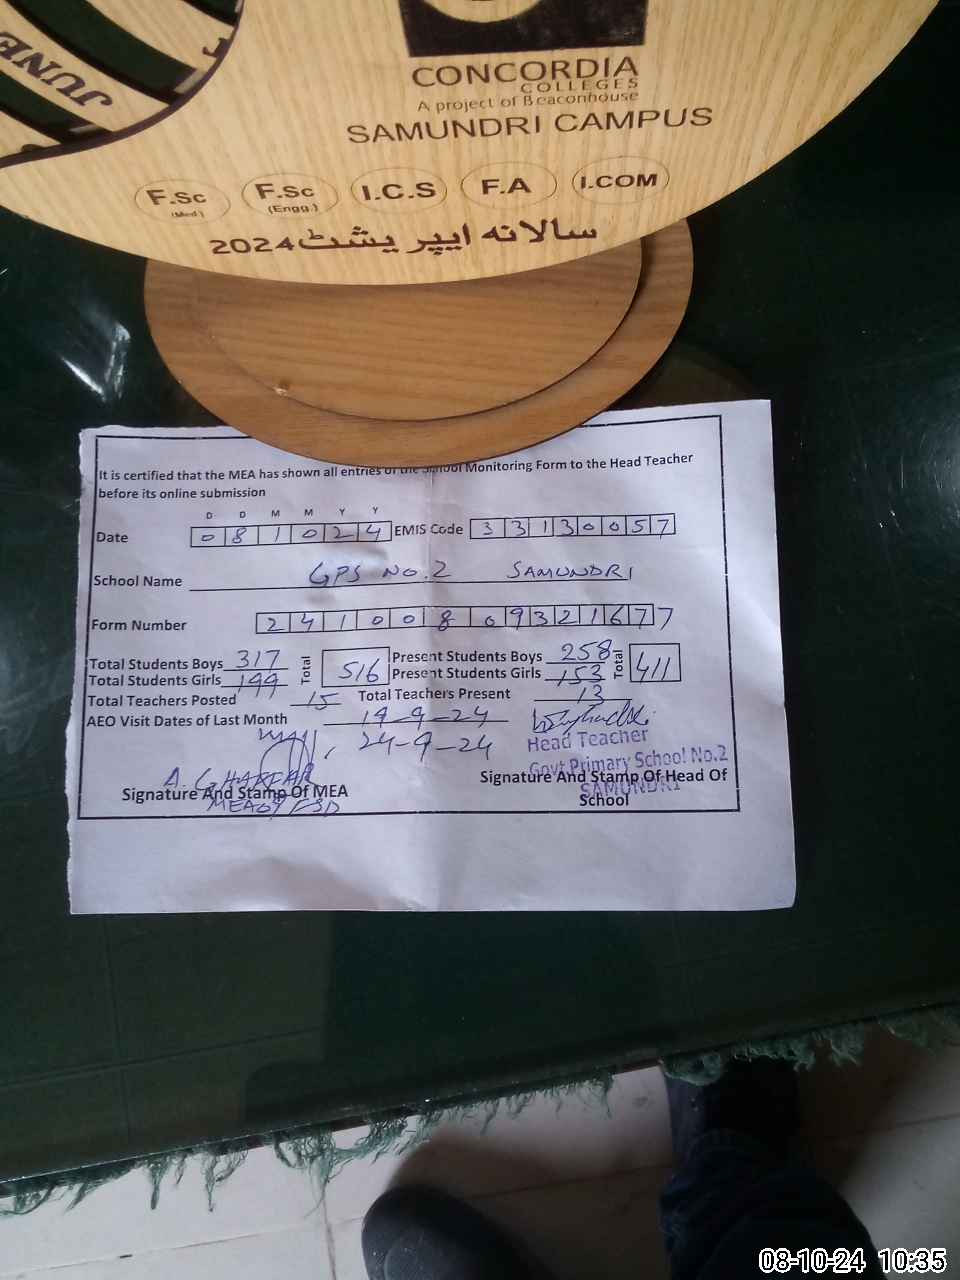 JUNE
CONCORDIA
COLLEGES
A project of Beaconhouse
SAMUNDRI CAMPUS
F.Sc (Med) F.Sc (Engg.) I.C.S F.A I.COM
سالانہ ایپریشٹ 2024
It is certified that the MEA has shown all entries of the School Monitoring Form to the Head Teacher
before its online submission
D D M M Y Y
Date 0 8 1 0 2 4 EMIS Code 3 3 1 3 0 0 5 7
School Name GPS NO.2 SAMUNDRI
Form Number 2 4 1 0 0 8 0 9 3 2 1 6 7 7
Total Students Boys 317 Total 516 Present Students Boys 258 Total 411
Total Students Girls 199 Present Students Girls 153
Total Teachers Posted 15 Total Teachers Present 13
AEO Visit Dates of Last Month 19-9-24
, 24-9-24
Head Teacher
Govt Primary School No.2
SAMUNDRI
Signature And Stamp Of MEA
Signature And Stamp Of Head Of
School
08-10-24 10:35